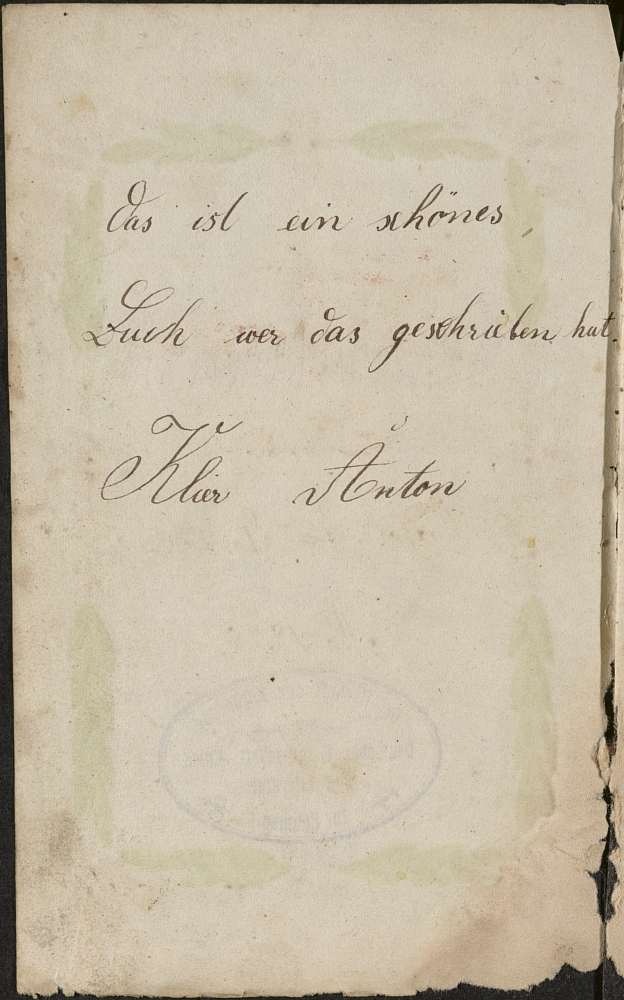 das ist ein schönes
Buch wer das geschrieben hat.
Klier Anton